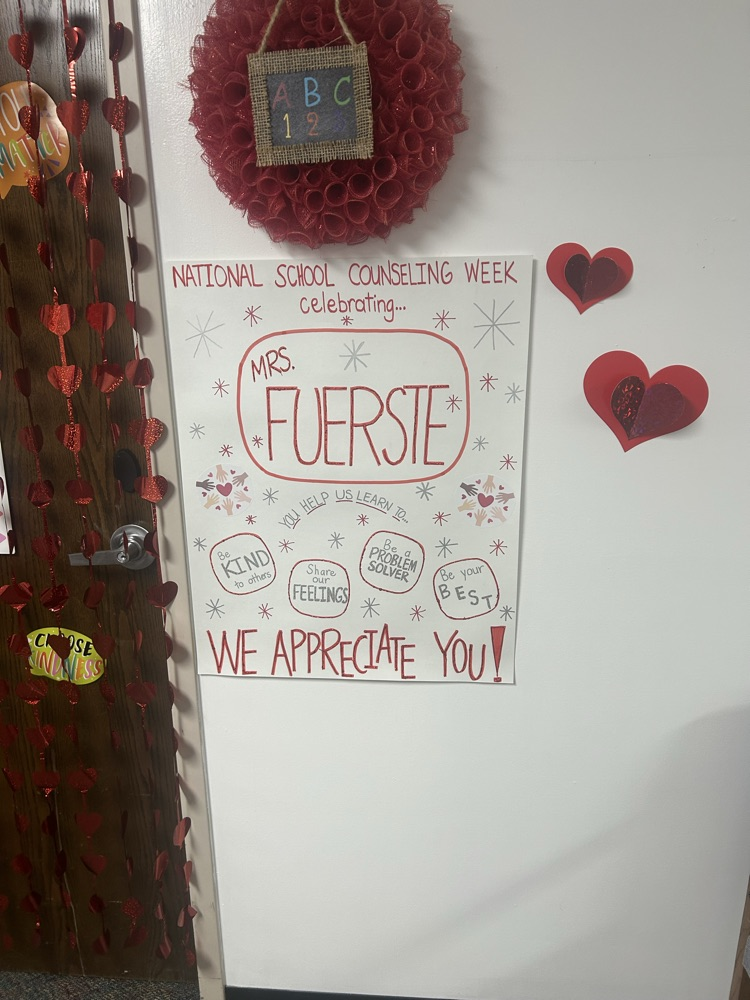 A B C
1 2
NATIONAL SCHOOL COUNSELING WEEK
celebrating...
MRS.
FUERSTE
YOU HELP US LEARN TO...
Be
KIND
to others
Share
our
FEELINGS
Be a
PROBLEM
SOLVER
Be your
BEST
WE APPRECIATE YOU!
CHOOSE
KINDNESS